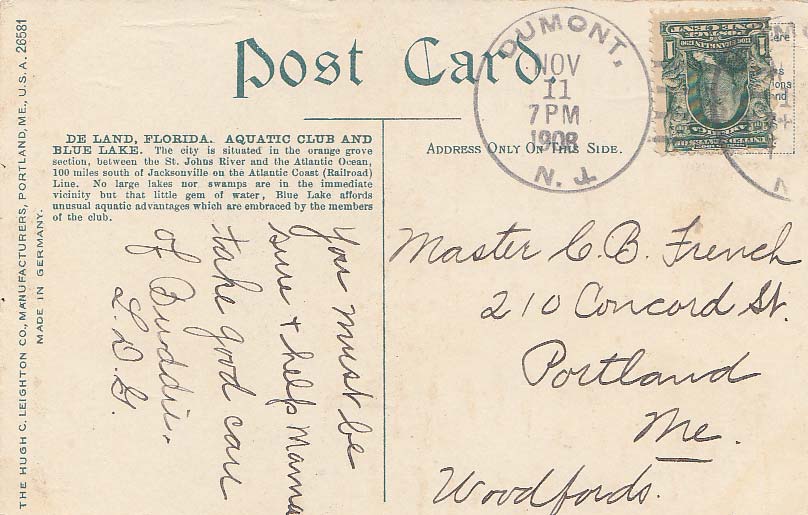 Post Card.
DE LAND, FLORIDA. AQUATIC CLUB AND
BLUE LAKE. The city is situated in the orange grove
section, between the St. Johns River and the Atlantic Ocean,
100 miles south of Jacksonville on the Atlantic Coast (Railroad)
Line. No large lakes nor swamps are in the immediate
vicinity but that little gem of water, Blue Lake affords
unusual aquatic advantages which are embraced by the members
of the club.
You must be
sure + help Mama
take good care
of Buddie.
L.D.G.
THE HUGH C. LEIGHTON CO., MANUFACTURERS, PORTLAND, ME., U.S.A. 26581
MADE IN GERMANY.
DUMONT,
NOV
11
7 PM
1908
N. J.
ADDRESS ONLY ON THIS SIDE.
Master C. B. French
210 Concord St.
Portland
Me.
Woodfords.